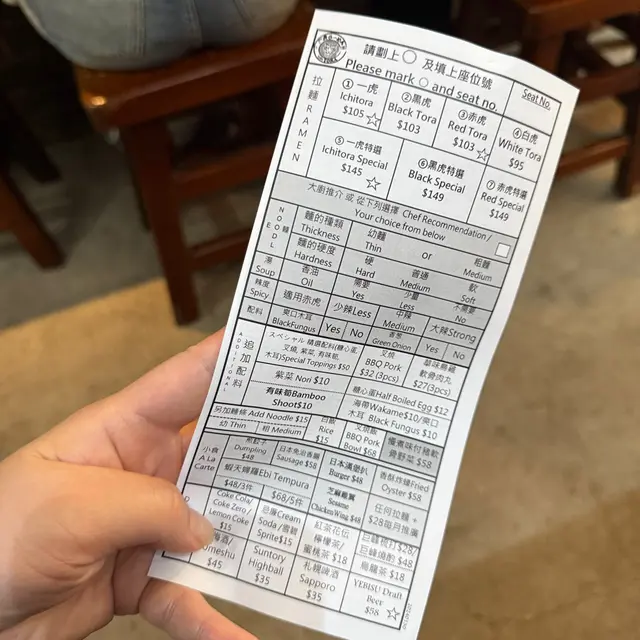 請劃上○ 及填上座位號
Please mark ○ and seat no.
Seat No.
拉麵 RAMEN
① 一虎
Ichitora
$105
②黑虎
Black Tora
$103
③赤虎
Red Tora
$103
④白虎
White Tora
$95
⑤ 一虎特選
Ichitora Special
$145
⑥黑虎特選
Black Special
$149
⑦ 赤虎特選
Red Special
$149
大廚推介 或 從下列選擇 Chef Recommendation /
Your choice from below
麵 NOODL
麵的種類
Thickness
幼麵
Thin
or
粗麵
Medium
麵的硬度
Hardness
硬
Hard
普通
Medium
軟
Soft
湯
Soup
香油
Oil
需要
Yes
少量
Less
不需要
No
辣度
Spicy
適用赤虎
少辣Less
中辣
Medium
大辣Strong
配料
爽口木耳
BlackFungus
Yes No
香葱
Green Onion
Yes No
ADDITIONAL
追加配料
スペシャル 精選配料(糖心蛋,
叉燒, 紫菜, 有味筍,
木耳)Special Toppings $50
叉燒
BBQ Pork
$32 (3pcs)
軟骨肉丸
$27(3pcs)
紫菜 Nori $10
糖心蛋Half Boiled Egg $12
有味筍Bamboo
Shoot$10
海帶Wakame$10/爽口
木耳 Black Fungus $10
另加麵條 Add Noodle $15
幼 Thin 粗 Medium
白飯
Rice
$15
叉燒飯
BBQ Pork
Bowl $68
慢煮味付豬軟
骨野菜 $58
小食
A La
Carte
煎餃子
Dumpling
$48
日本免治香腸
Sausage $58
日本漢堡扒
Burger $48
香酥炸蠔Fried
Oyster $58
蝦天婦羅Ebi Tempura
$48/3件 $68/5件
芝麻雞翼
Sesame
ChickenWing $48
任何拉麵 +
$28每月推廣
Coke Cola/
Coke Zero/
Lemon Coke
$15
忌廉Cream
Soda /雪碧
Sprite$15
紅茶花伝
檸檬茶/
蜜桃茶 $18
巨峰梳打$28/
巨峰燒酌 $48
烏龍茶 $18
梅酒/
Umeshu
$45
Suntory
Highball
$35
札幌啤酒
Sapporo
$35
YEBISU Draft
Beer
$58